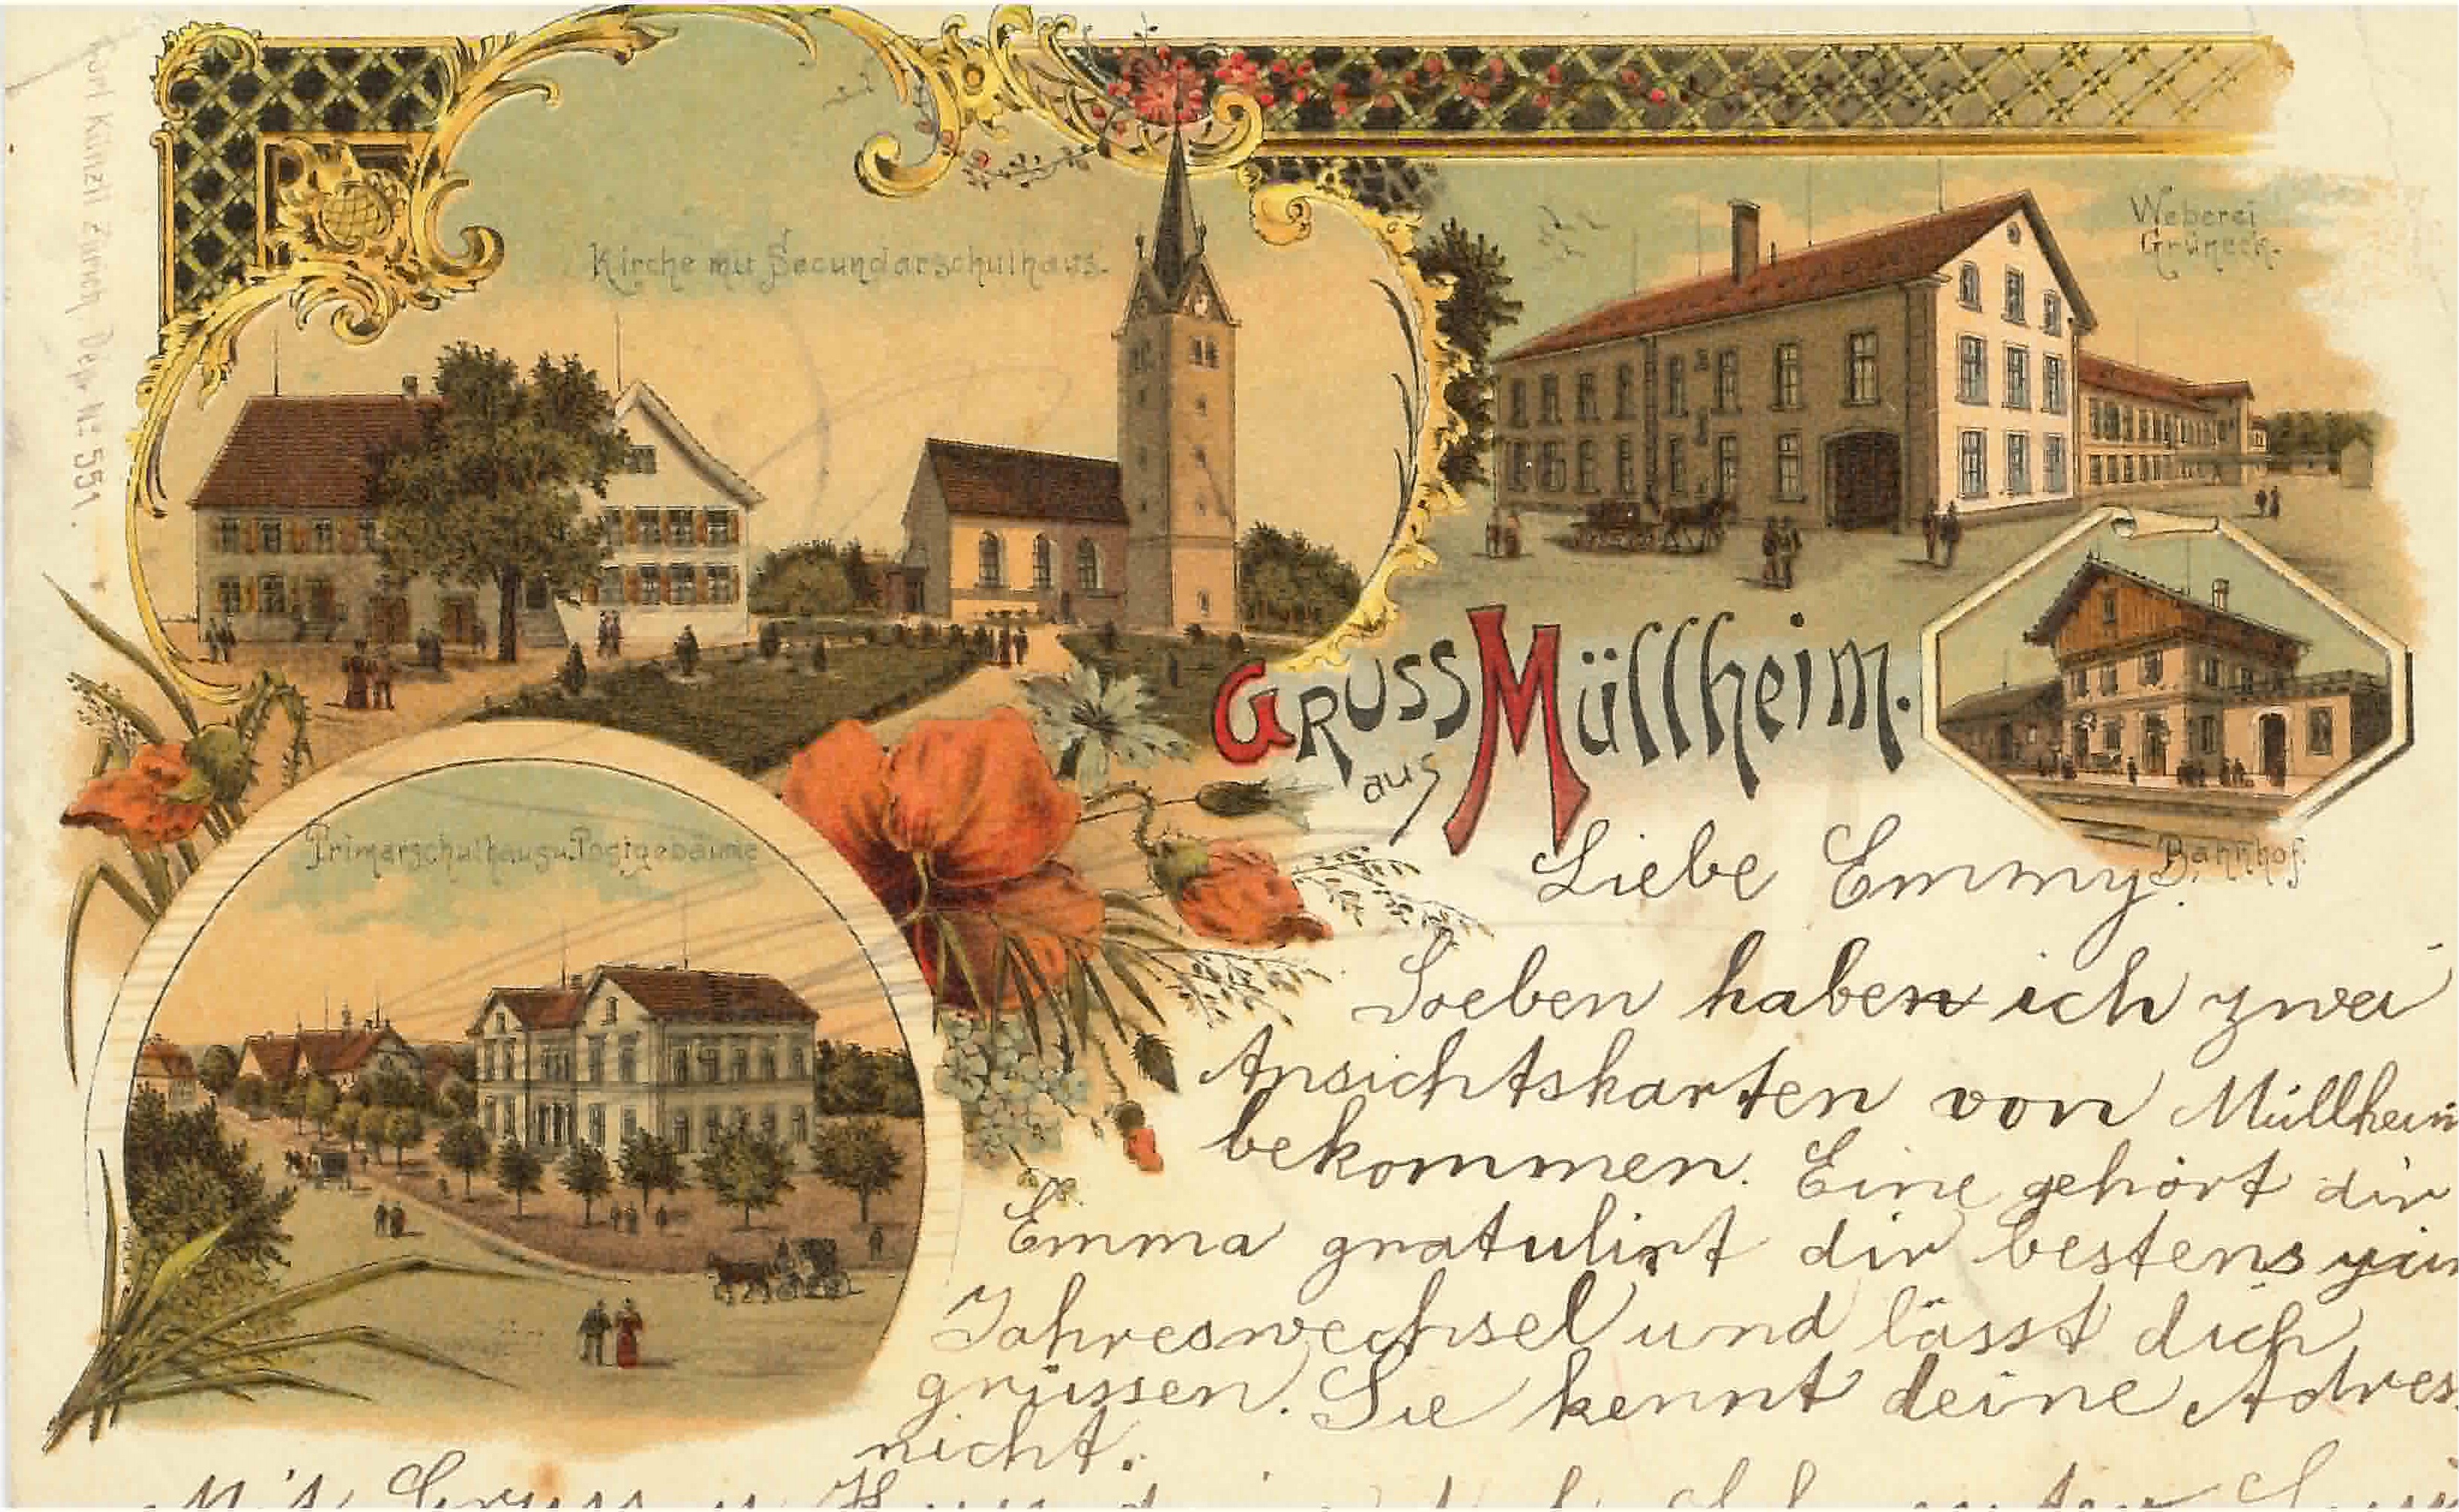 Carl Künzli Zürich Dep. Nº 551.
Kirche mit Secundarschulhaus.
Weberei
Grüneck.
GRUSS
aus
Müllheim.
Bahnhof.
Primarschulhaus u. Postgebäude
Liebe Emmy!
Soeben haben ich zwei
Ansichtskarten von Müllheim
bekommen. Eine gehört dir
Emma gratulirt dir bestens zum
Jahreswechsel und lässt dich
grüssen. Sie kennt deine Adres
nicht.
Mit Gruss u. Kuss